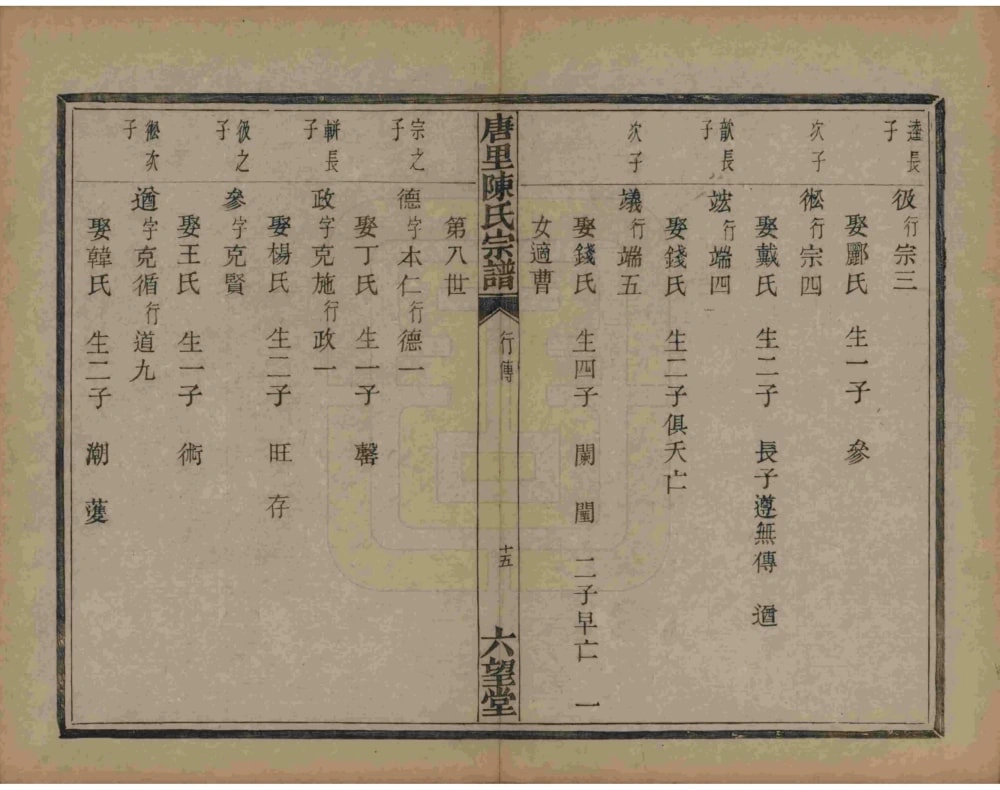 逵長子
彶行宗三
娶酈氏 生一子 參
次子
彸行宗四
娶戴氏 生二子 長子遵無傳 遒
歆長子
竑行端四
娶錢氏 生二子俱夭亡
次子
㙾行端五
娶錢氏 生四子 闌 闉 二子早亡 一
女適曹
唐里陳氏宗譜
行傳
十五
六望堂
第八世
宗之子
德字本仁行德一
娶丁氏 生一子 罄
輧長子
政字克施行政一
娶楊氏 生二子 旺 存
彶之子
參字克賢
娶王氏 生一子 術
彸次子
遒字克循行道九
娶韓氏 生二子 潮 蒦